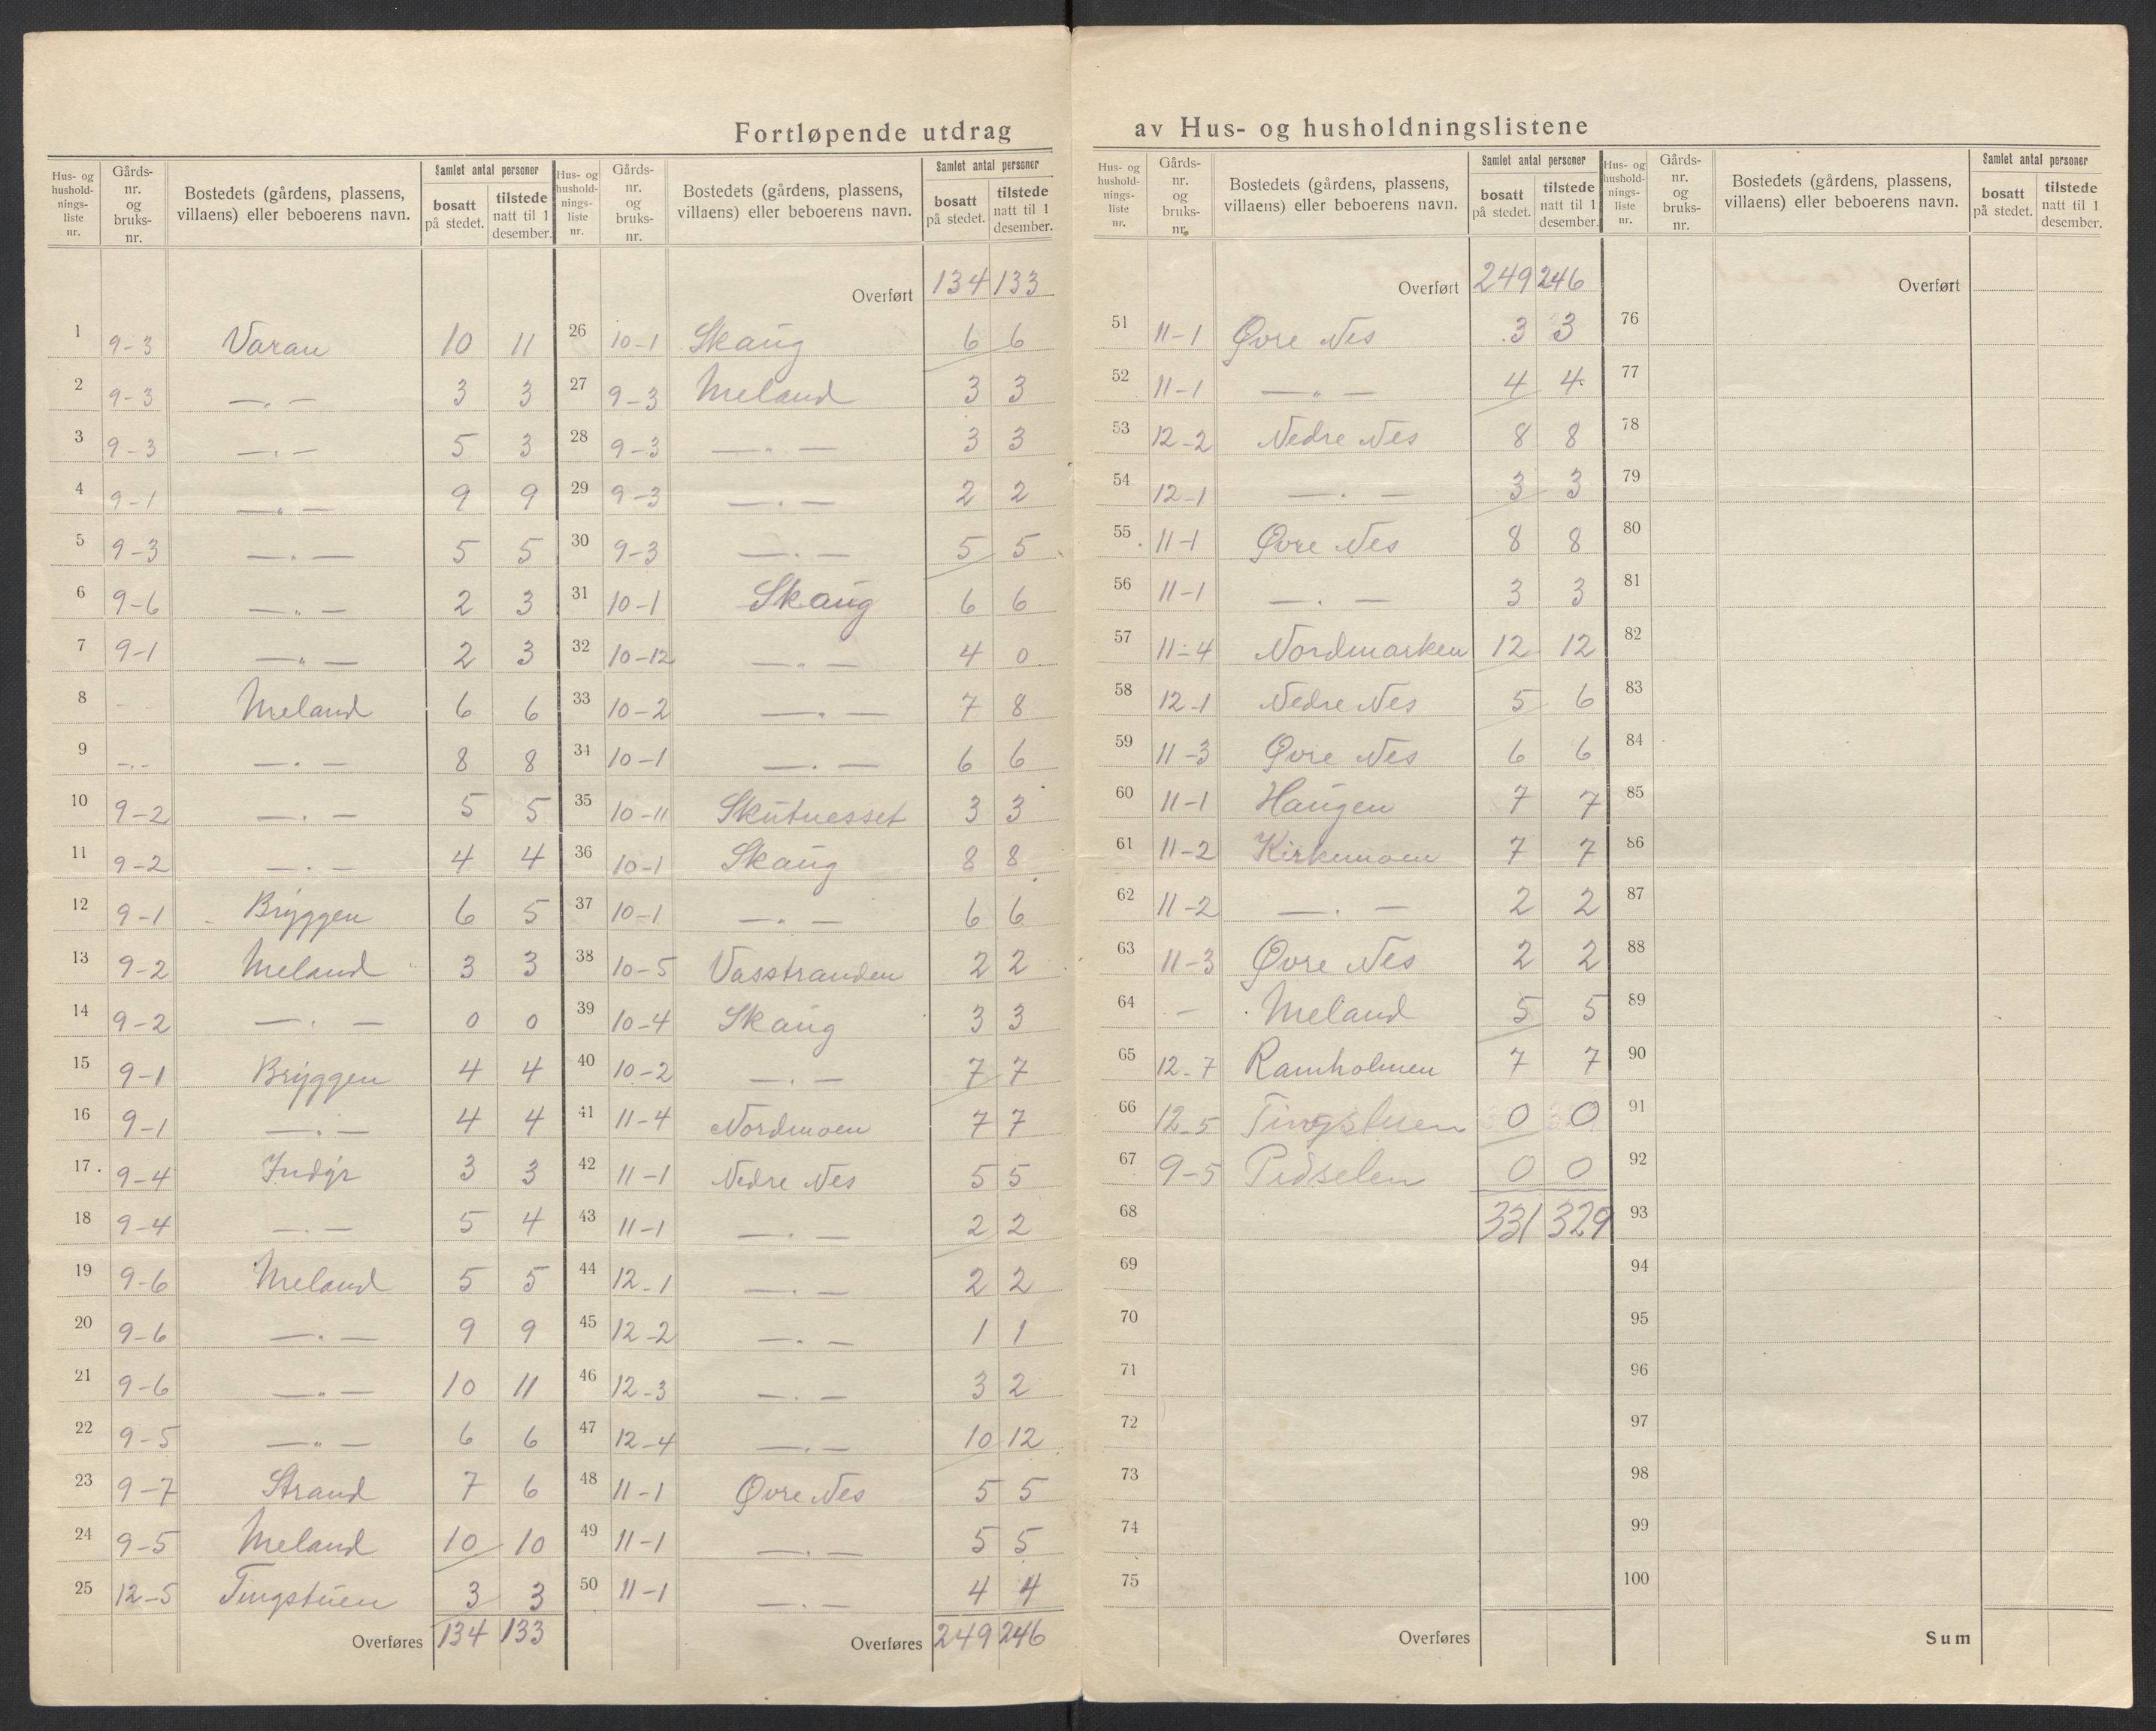 Fortløpende utdrag av Hus- og husholdningslistene
Hus- og hushold-nings-liste nr. Gårds-nr. og bruks-nr. Bostedets (gårdens, plassens, villaens) eller beboerens navn. Samlet antal personer bosatt på stedet. tilstede natt til 1 desember.
1 9-3 Varan 10 11
2 9-3 —„— 3 3
3 9-3 —„— 5 3
4 9-1 —„— 9 9
5 9-3 —„— 5 5
6 9-6 —„— 2 3
7 9-1 —„— 2 3
8 - - Meland 6 6
9 -.- —„— 8 8
10 9-2 —„— 5 5
11 9-2 —„— 4 4
12 9-1 Bryggen 6 5
13 9-2 Meland 3 3
14 9-2 —„— 0 0
15 9-1 Bryggen 4 4
16 9-1 —„— 4 4
17. 9-4 Indyr 3 3
18 9-4 —„— 5 4
19 9-6 Meland 5 5
20 9-6 —„— 9 9
21 9-6 —„— 10 11
22 9-5 —„— 6 6
23 9-7 Strand 7 6
24 9-5 Meland 10 10
25 12-5 Tingstuen 3 3
Overføres 134 133
Hus- og hushold-nings-liste nr. Gårds-nr. og bruks-nr. Bostedets (gårdens, plassens, villaens) eller beboerens navn. Samlet antal personer bosatt på stedet. tilstede natt til 1 desember.
Overført 134 133
26 10-1 Skaug 6 6
27 9-3 Meland 3 3
28 9-3 —„— 3 3
29 9-3 —„— 2 2
30 9-3 —„— 5 5
31 10-1 Skaug 6 6
32 10-12 —„— 4 0
33 10-2 —„— 7 8
34 10-1 —„— 6 6
35 10-11 Skutnesset 3 3
36 10-1 Skaug 8 8
37 10-1 —„— 6 6
38 10-5 Vasstranden 2 2
39 10-4 Skaug 3 3
40 10-2 —„— 7 7
41 11-4 Nordmoen 7 7
42 11-1 Nedre Nes 5 5
43 11-1 —„— 2 2
44 12-1 —„— 2 2
45 12-2 —„— 1 1
46 12-3 —„— 3 2
47 12-4 —„— 10 12
48 11-1 Øvre Nes 5 5
49 11-1 —„— 5 5
50 11-1 —„— 4 4
Overføres 249 246
Hus- og hushold-nings-liste nr. Gårds-nr. og bruks-nr. Bostedets (gårdens, plassens, villaens) eller beboerens navn. Samlet antal personer bosatt på stedet. tilstede natt til 1 desember.
Overført 249 246
51 11-1 Øvre Nes 3 3
52 11-1 —„— 4 4
53 12-2 Nedre Nes 8 8
54 12-1 —„— 3 3
55 11-1 Øvre Nes 8 8
56 11-1 —„— 3 3
57 11-4 Nordmarken 12 12
58 12-1 Nedre Nes 5 6
59 11-3 Øvre Nes 6 6
60 11-1 Haugen 7 7
61 11-2 Kirkemoen 7 7
62 11-2 —„— 2 2
63 11-3 Øvre Nes 2 2
64 - Meland 5 5
65 12-7 Ramholmen 7 7
66 12-5 Tingstuen 0 0
67 9-5 0 0
68 331 329
69
70
71
72
73
74
75
Overføres
Hus- og hushold-nings-liste nr. Gårds-nr. og bruks-nr. Bostedets (gårdens, plassens, villaens) eller beboerens navn. Samlet antal personer bosatt på stedet. tilstede natt til 1 desember.
Overført
76
77
78
79
80
81
82
83
84
85
86
87
88
89
90
91
92
93
94
95
96
97
98
99
100
Sum